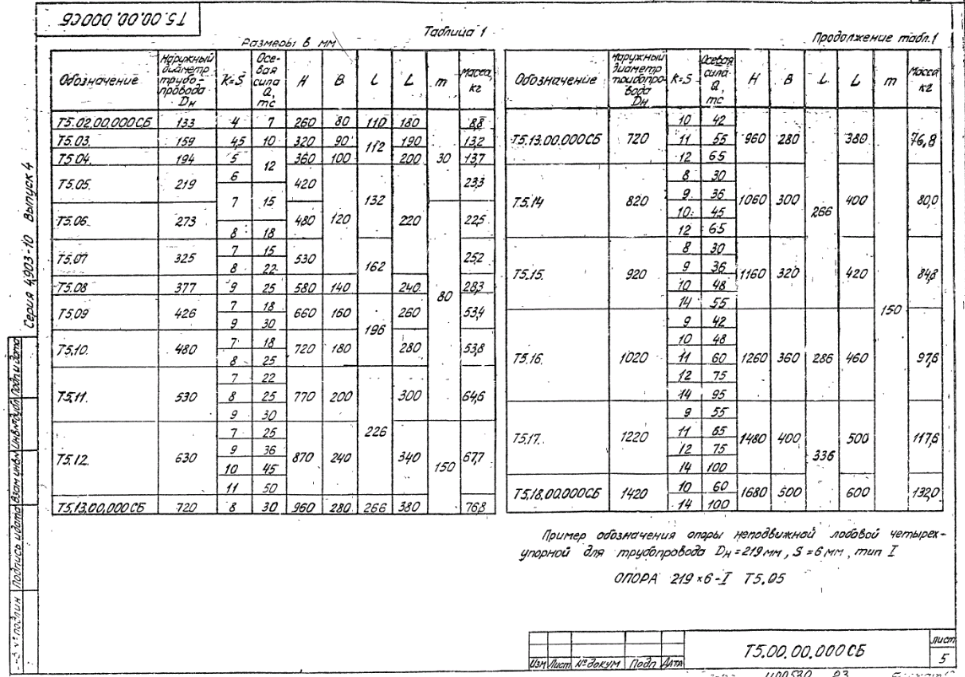 Т5.00.00.000СБ
Таблица 1
Размеры в мм
Обозначение | Наружный диаметр трубопровода Dн | K=S | Осевая сила Q, тс | H | B | L | L | m | Масса, кг
Т5.02.00.000СБ 133 4 7 260 80 110 180 8,8
Т5.03. 159 4,5 10 320 90 112 190 13,2
Т5.04. 194 5 12 360 100 200 30 13,7
Т5.05. 219 6 420 132 23,3
7 15
Т5.06. 273 480 120 220 22,5
8 18
Т5.07 325 7 15 530 162 25,2
8 22
Т5.08 377 9 25 580 140 240 80 28,3
Т5.09 426 7 18 660 160 196 260 53,4
9 30
Т5.10. 480 7 18 720 180 280 53,8
8 25
Т5.11. 530 7 22 770 200 300 64,6
8 25
9 30
226
Т5.12. 630 7 25 870 240 340 150 67,7
9 36
10 45
11 50
Т5.13.00.000СБ 720 8 30 960 280 266 380 76,8
Продолжение табл.1
Обозначение | Наружный диаметр трубопровода Dн | K=S | Осевая сила Q, тс | H | B | L | L | m | Масса кг
Т5.13.00.000СБ 720 10 42 960 280 380 76,8
11 55
12 65
Т5.14 820 8 30 1060 300 266 400 80,0
9 36
10 45
12 65
Т5.15. 920 8 30 1160 320 420 84,8
9 36
10 48
14 55
150
Т5.16. 1020 9 42 1260 360 286 460 97,6
10 48
11 60
12 75
14 95
Т5.17. 1220 9 55 1480 400 336 500 117,6
11 65
12 75
14 100
Т5.18.00.000СБ 1420 10 60 1680 500 600 132,0
14 100
Пример обозначения опоры неподвижной лобовой четырех-
упорной для трубопровода Dн=219мм, S=6мм, тип I
ОПОРА 219×6-I Т5.05
Серия 4.903-10 Выпуск 4
Подпись и дата Взам инв№ Инв№дубл Подп и дата
Изм Лист № докум Подп Дата
Т5.00.00.000СБ
Лист
5